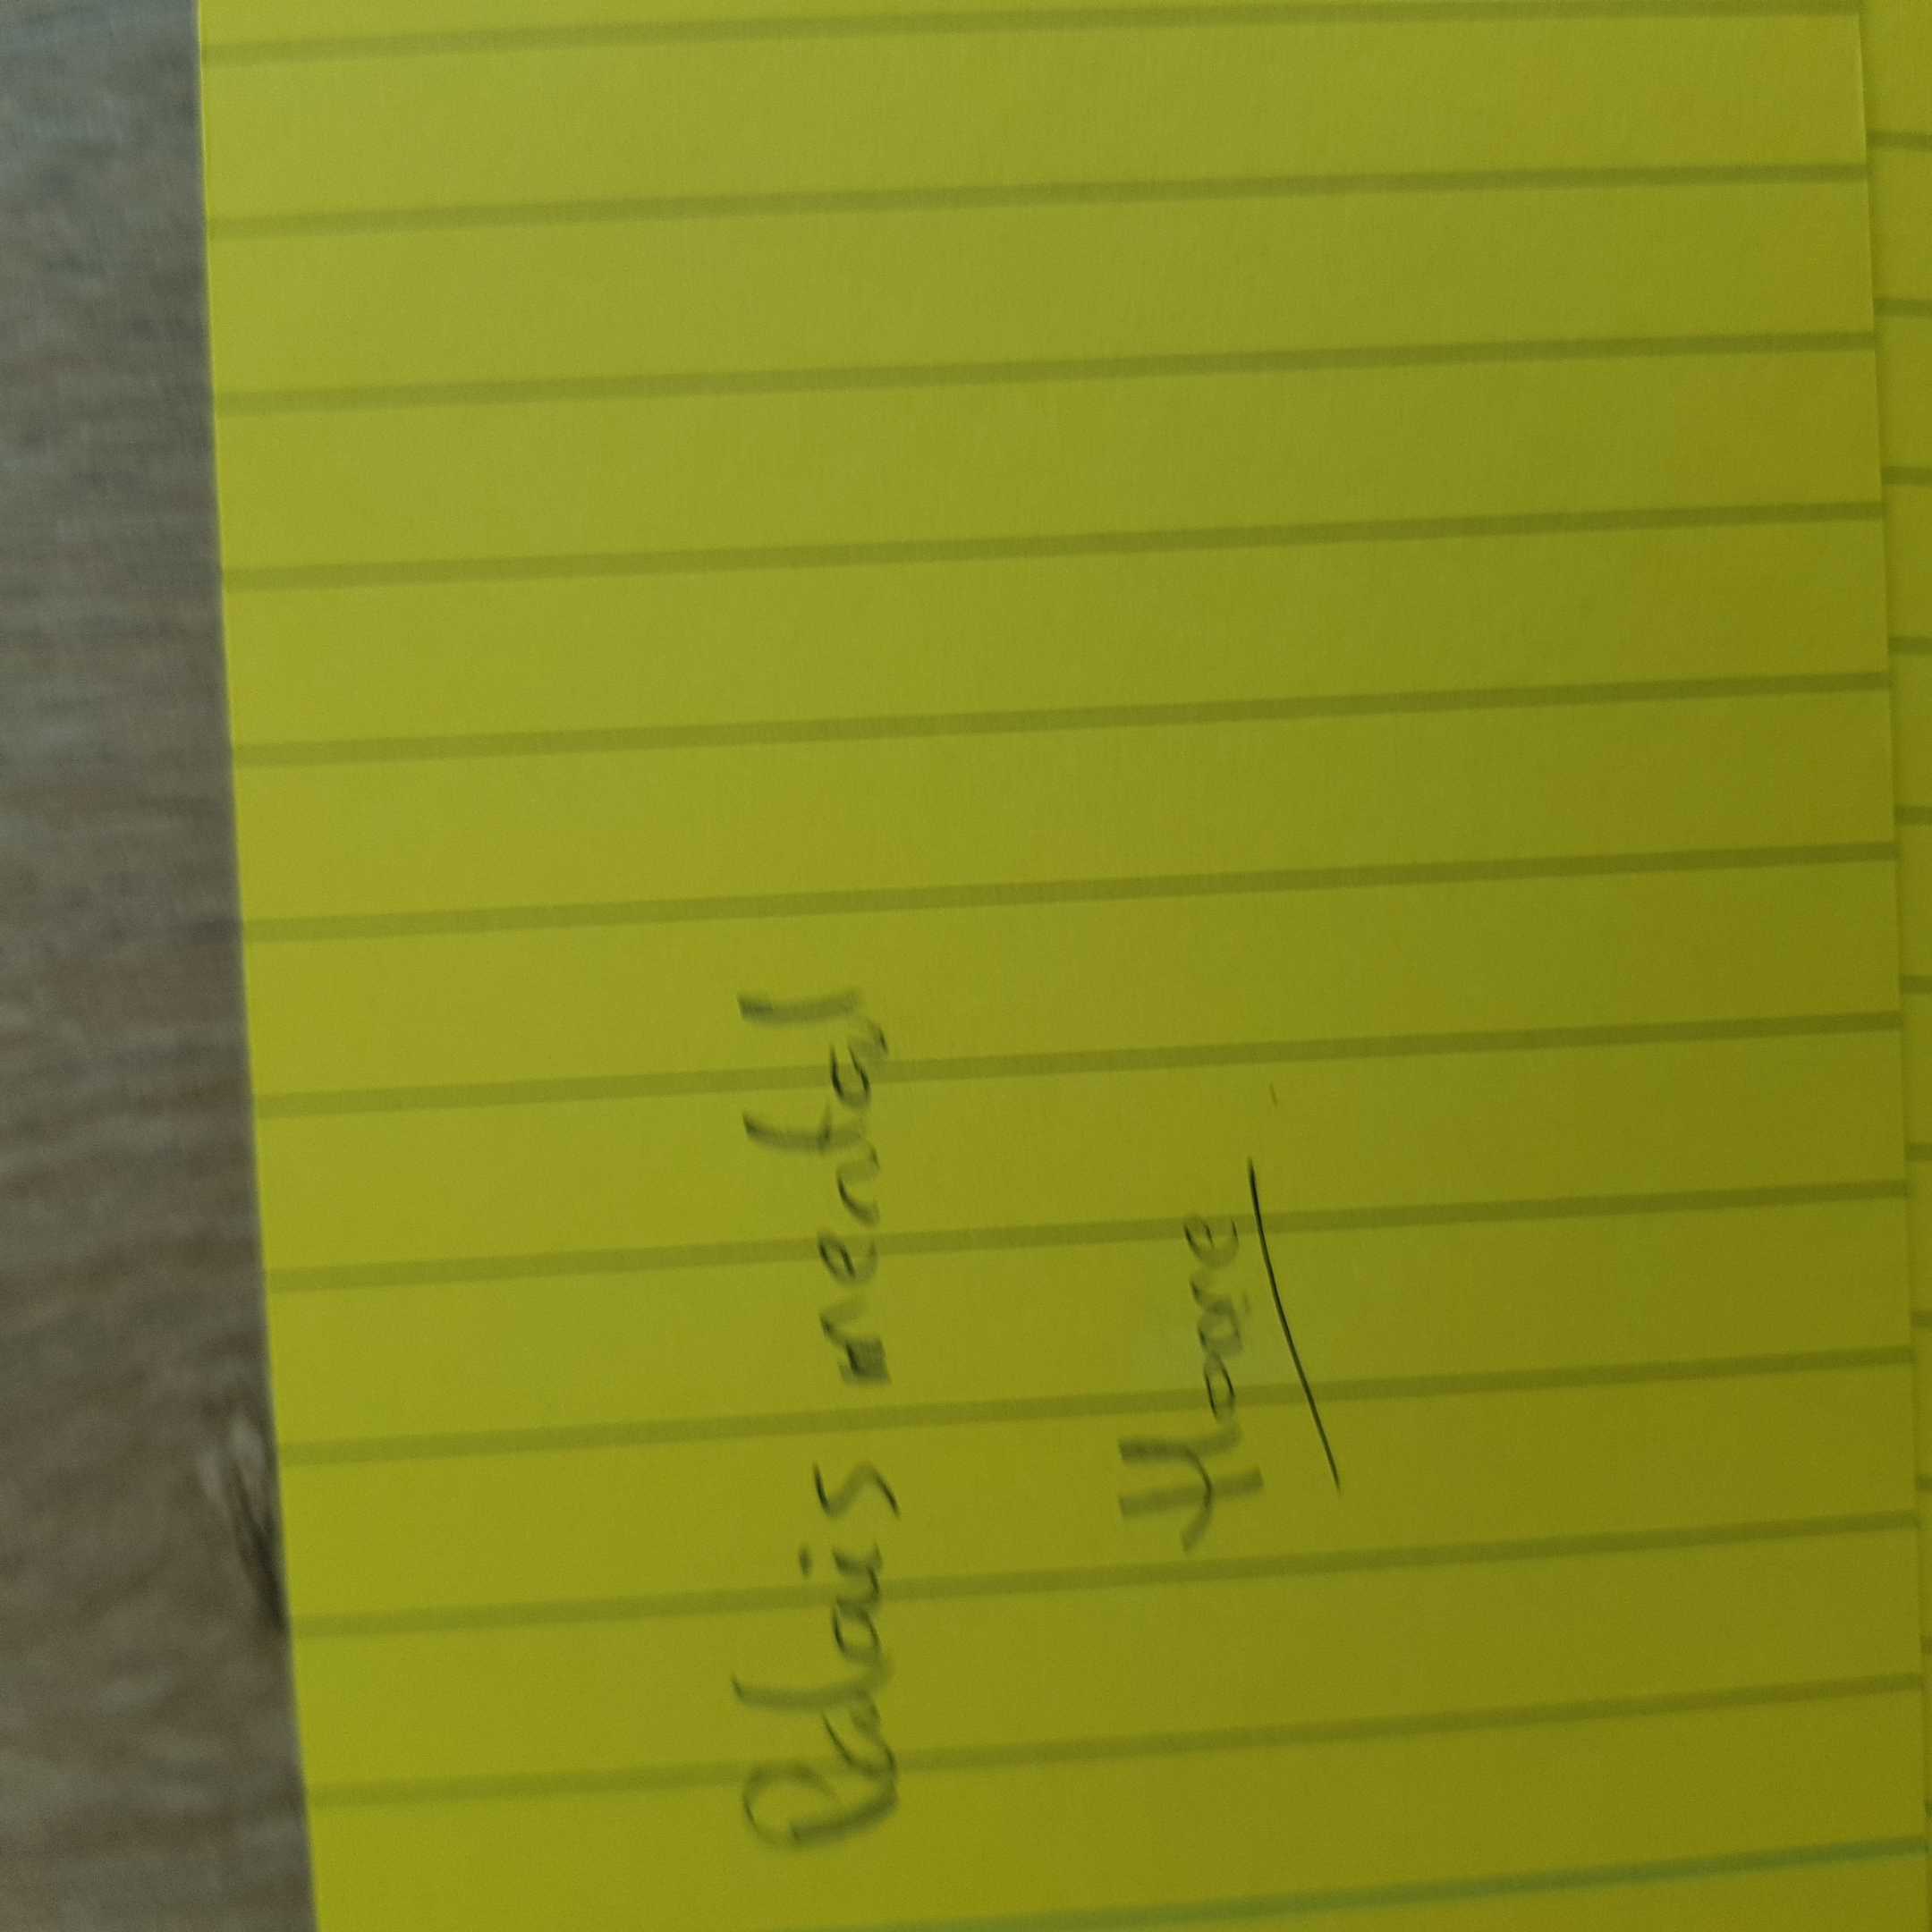 Relais mental
Hoare